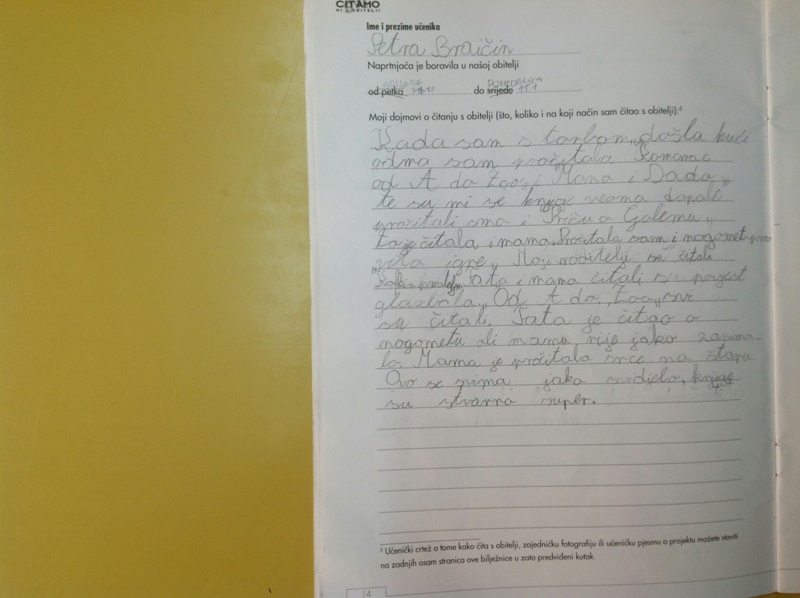 ČITAMO
MI U OBITELJI
Ime i prezime učenika
Petra Braičin
Naprtnjača je boravila u našoj obitelji
od petka do srijede
PONEDELJKA 11.1
Moji dojmovi o čitanju s obitelji (što, koliko i na koji način sam čitao s obitelji):⁵
Kada sam s torbom došla kući
odma sam pročitala Komarac
od A do Zoo„ i „Mana i Dada„
te su mi se knjige veoma dopale
pročitali smo i Priču o Golemu„
to je čitala i mama. Pročitala sam i nogomet prvo
vrla igre„ Moji roditelji su čitali
Tata i mama čitali su povjest
glazbala„ Od A do „Zoo„ sve
su čitali. Tata je čitao o
nogometu ali mamu nije jako zanima-
lo. Mama je pročitala srce na štapu.
Ovo se svima jako svidjelo, knjige
su stvarno super.
⁵ Učenički crtež o tome kako čita s obitelji, zajedničku fotografiju ili učeničku pjesmu o projektu možete staviti
na zadnjih osam stranica ove bilježnice u zato predviđeni kutak.
14